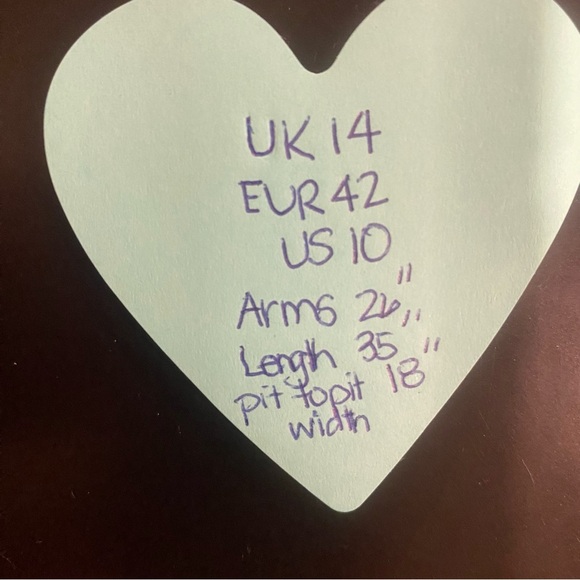 UK 14
EUR 42
US 10
Arms 26"
Length 35"
pit to pit 18"
width